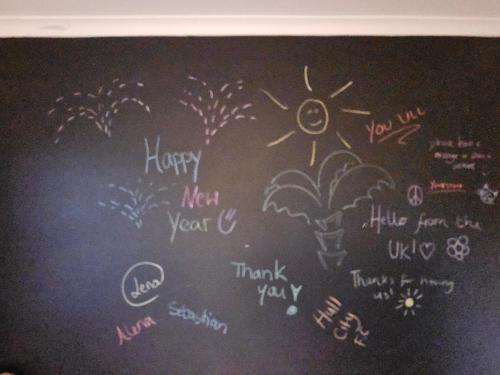 Happy
New
Year
You
please leave a
Hello from the
UK!
Thank
you!
Thanks for having
us!
Lena
Alena
Sebastian
Hull
City
FC